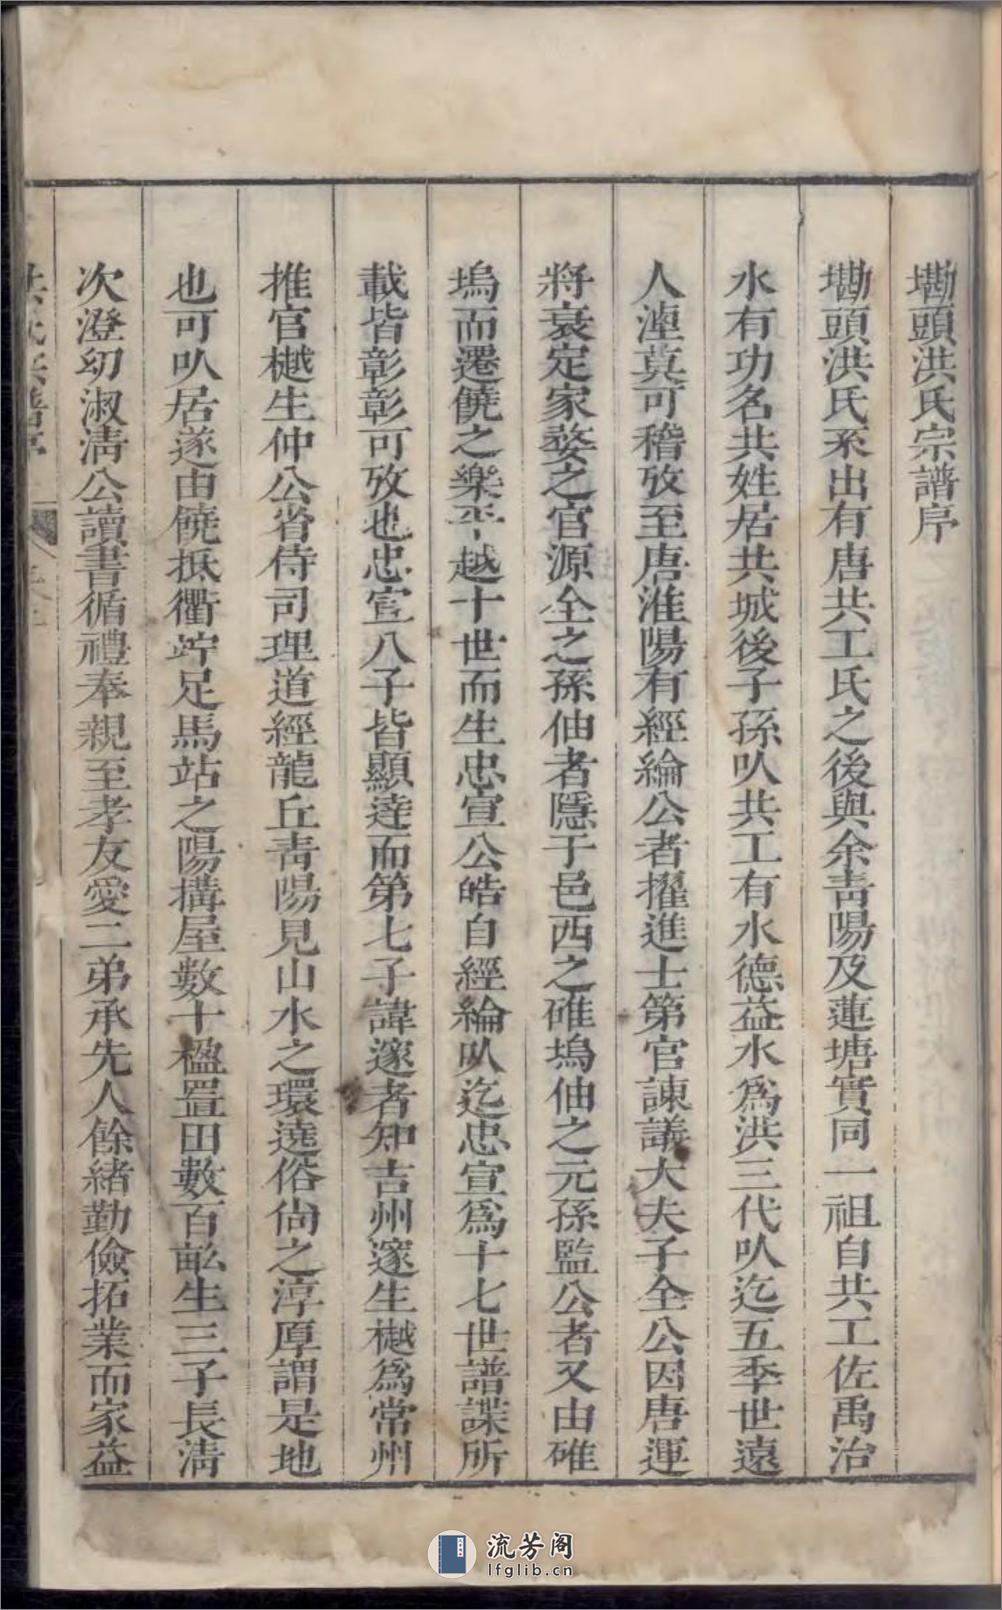 墈頭洪氏宗譜序
墈頭洪氏系出有唐共工氏之後與余靑陽及蓮塘實同一祖自共工佐禹治
水有功名共姓居共城後子孫㕥共工有水德益水爲洪三代㕥迄五季世遠
人湮莫可稽攷至唐淮陽有經綸公者擢進士第官諫議大夫子全公因唐運
將衰定家婺之官源全之孫伷者隱于邑西之碓塢伷之元孫監公者又由碓
塢而遷饒之樂平越十世而生忠宣公皓自經綸㕥迄忠宣爲十七世譜諜所
載皆彰彰可攷也忠宣八子皆顯達而第七子諱邃者知吉州邃生樾爲常州
推官樾生仲公省侍司理道經龍丘靑陽見山水之環遶俗尙之淳厚謂是地
也可㕥居遂由饒抵衢竚足馬站之陽搆屋數十楹置田數百畝生三子長淸
次澄幼淑淸公讀書循禮奉親至孝友愛二弟承先人餘緒勤儉拓業而家益
流芳阁
lfglib.cn